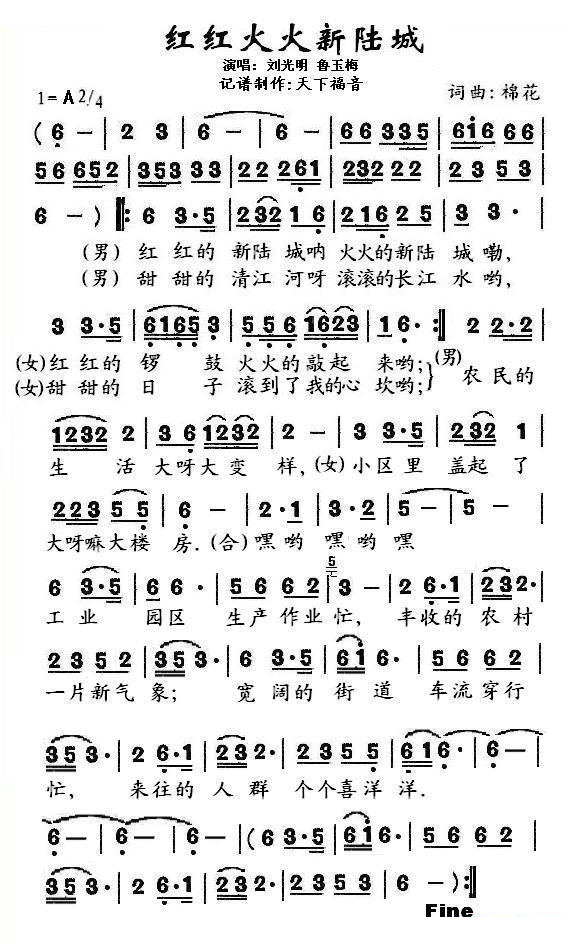 红红火火新陆城
演唱：刘光明 鲁玉梅
记谱制作：天下福音
1=A 2/4 词曲：棉花
( 6 － | 2 3 | 6 － | 6 － | 6 6 3 3 5 | 6 i 6 6 6 |
5 6 6 5 2 | 3 5 3 3 3 | 2 2 2 6 1 | 2 3 2 2 2 | 2 3 5 3 |
6 － ) |: 6 3·5 | 2 3 2 1 6 | 2 1 6 2·5 | 3 3· |
(男) 红 红的 新陆 城呐 火火的新陆 城嘞,
(男) 甜 甜的 清江 河呀 滚滚的长江 水哟,
3 3·5 | 6 1 6 5 3 | 5 5 6 1 6 2 3 | 1 6· :| 2 2·2 |
(女)红 红的 锣 鼓 火火的敲起 来哟; (男)
(女)甜 甜的 日 子 滚到了我的心 坎哟; 农 民的
1 2 3 2 2 | 3 6 1 2 3 2 | 2 － | 3 3·5 | 2 3 2 1 |
生 活 大呀大变 样, (女)小区里 盖起了
2 2 3 5 5 | 6 － | 2·1 | 3·2 | 5 － | 5 － |
大呀嘛大楼 房. (合)嘿 哟 嘿 哟 嘿
5
6 3·5 | 6 6· | 5 6 6 2 | 3 － | 2 6·1 | 2 3 2· |
工 业 园区 生产作业忙, 丰收的 农村
2 3 5 5 | 3 5 3· | 6 3·5 | 6 i 6· | 5 6 6 2 |
一片新气 象; 宽 阔的 街 道 车流穿行
3 5 3· | 2 6·1 | 2 3 2· | 2 3 5 5 | 6 1 6· | 6 － |
忙, 来往的 人 群 个个喜洋 洋.
6 － | 6 － | 6 － | (6 3·5 | 6 i 6· | 5 6 6 2 |
3 5 3· | 2 6·1 | 2 3 2· | 2 3 5 3 | 6 － ) :|
Fine